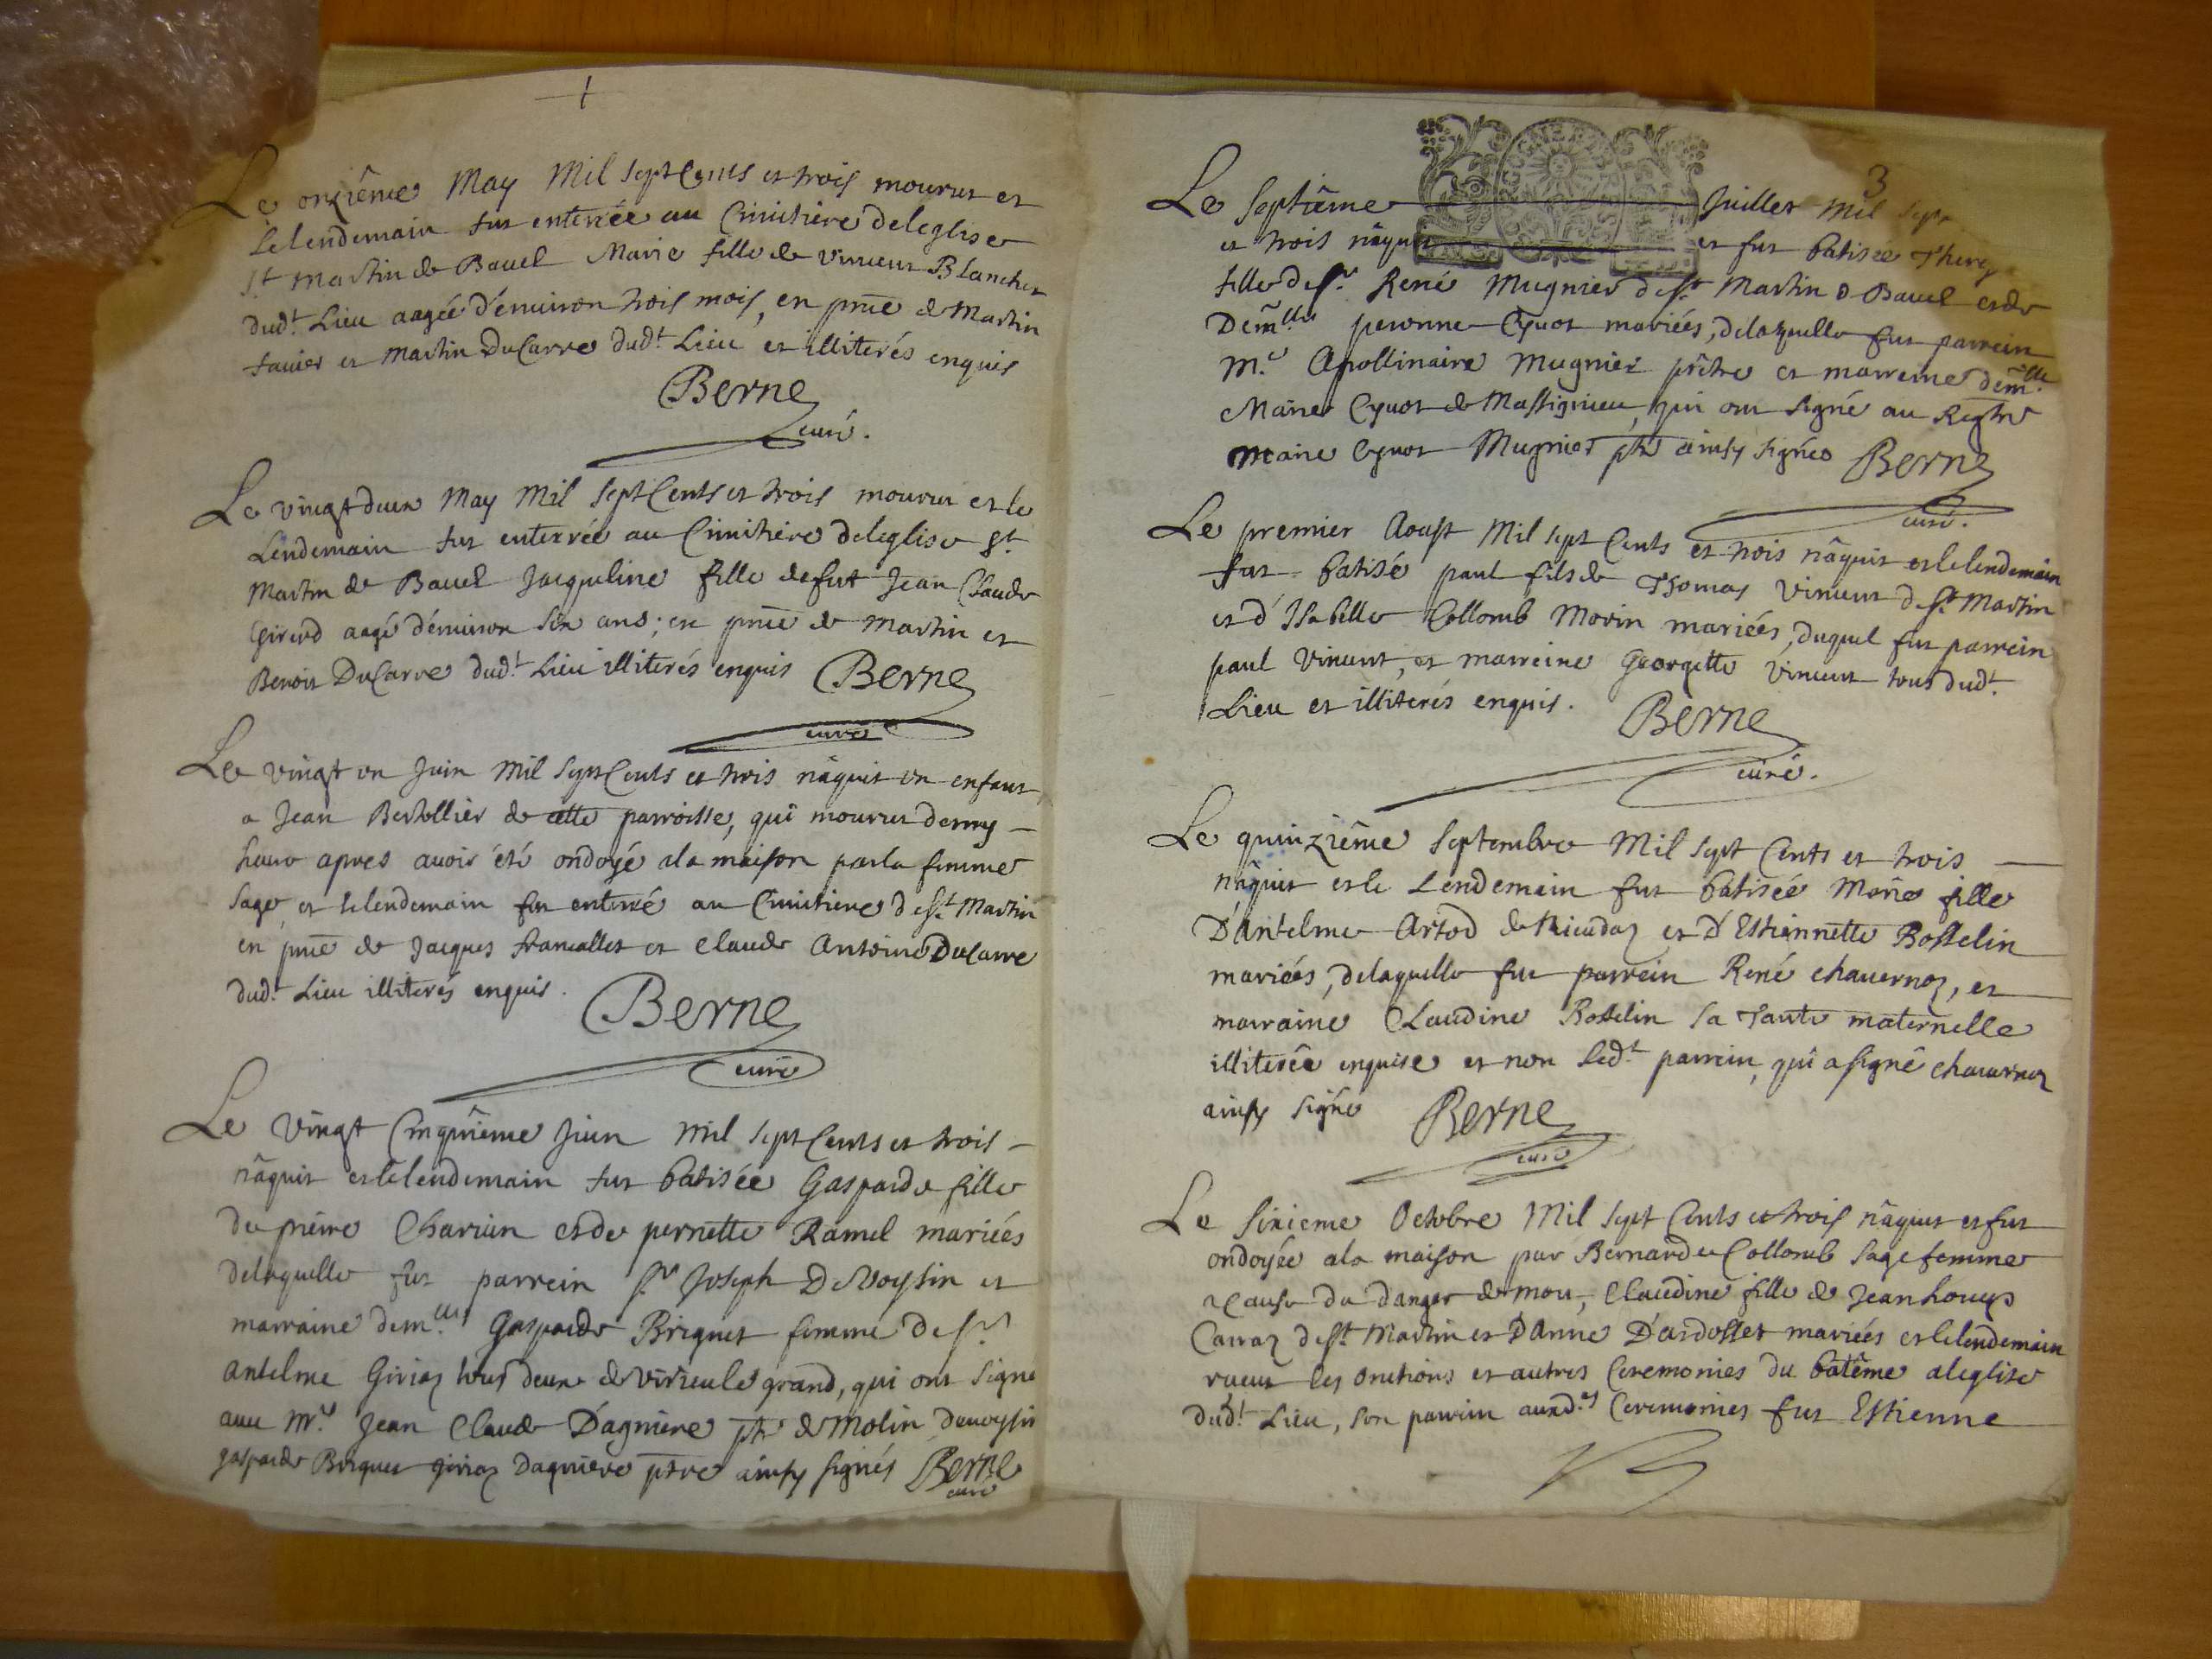 Le onziême May Mil Sept Cents et trois mourut et
le lendemain fut enterrée au Cimitière de leglise
St Martin de Bavel Marie fille de Vincent Blanchet
dudt Lieu aagée d'environ trois mois, en pnce de Martin
favier et Martin DuCarre dudt Lieu et illiterés enquis
Berne
curé.
Le vingt deux May Mil Sept Cents et trois mourut et le
Lendemain fut enterrée au Cimitière de leglise St
Martin de Bavel Jacqueline fille de fut Jean Claude
Girerd aagé d'environ six ans; en pnce de Martin et
Benoit DuCarre dudt Lieu illiterés enquis Berne
curé
Le vingt un Juin Mil Sept Cents et trois nâquit un enfant
a Jean Bertellier de cette parroisse, qui mourut demy
heure apres avoir été ondoyé a la maison par la femme
sage, et le lendemain fut enterré au Cimitiere de St Martin
en pnce de Jacques francallet et Claude Antoine DuCarre
dudt Lieu illiterés enquis.
Berne
curé
Le vingt Cinquième Juin Mil Sept Cents et trois
nâquit et le lendemain fut batisée Gasparde fille
de pierre Charvin et de pernette Ramel mariées
delaquelle fut parrein Sr Joseph DeVoysin et
marraine demlle Gasparde Briquet femme de Sr
Antelme Giriaz tous deux de Virieu le grand, qui ont signé
avec Mre Jean Claude Dagniere ptre de Molin devoysin
gasparde Briquet giriaz Dagniere ptre ainsy signés Berne
curé
3
Le septiême Juillet Mil Sept
et trois nâquit et fut batisée There
fille de Sr René Mugnier de St Martin D Bavel et de
Demlle peronne Cyvot mariées, delaquelle fut parrein
Mre Apollinaire Mugnier prêtre et marreine demlle
Marie Cyvot de Massignieu, qui ont signé au Registre
Marie Cyvot Mugnier ptre ainsy signés Berne
curé.
Le premier Aoust Mil Sept Cents et trois nâquit et le lendemain
fut batisé paul fils de Thomas Vincent de St Martin
et d'Isabelle Collomb Morin mariées, duquel fut parrein
paul Vincent, et marreine Georgette Vincent tous dudt
Lieu et illiterés enquis.
Berne
curé.
Le quinziême Septembre Mil Sept Cents et trois
nâquit et le Lendemain fut batisée Marie fille
D'Antelme Artod de et D'Estiennette Bosselin
mariées, delaquelle fut parrein René chavernoz, et
marraine Claudine Bosselin sa Tante maternelle
illiterée enquise et non ledt parrein, qui a signé chavernoz
ainsy signé Berne
curé
Le Sixieme Octobre Mil Sept Cents et trois nâquit et fut
ondoyée a la maison par Bernarde Collomb Sage femme
a cause du danger de mort, Claudine fille de Jean Louys
Carraz de St Martin et D'Anne D'ardosset mariées et le lendemain
receut les onctions et autres Ceremonies du batême a leglise
dudt Lieu, son parrein auxdes Ceremonies fut Estienne